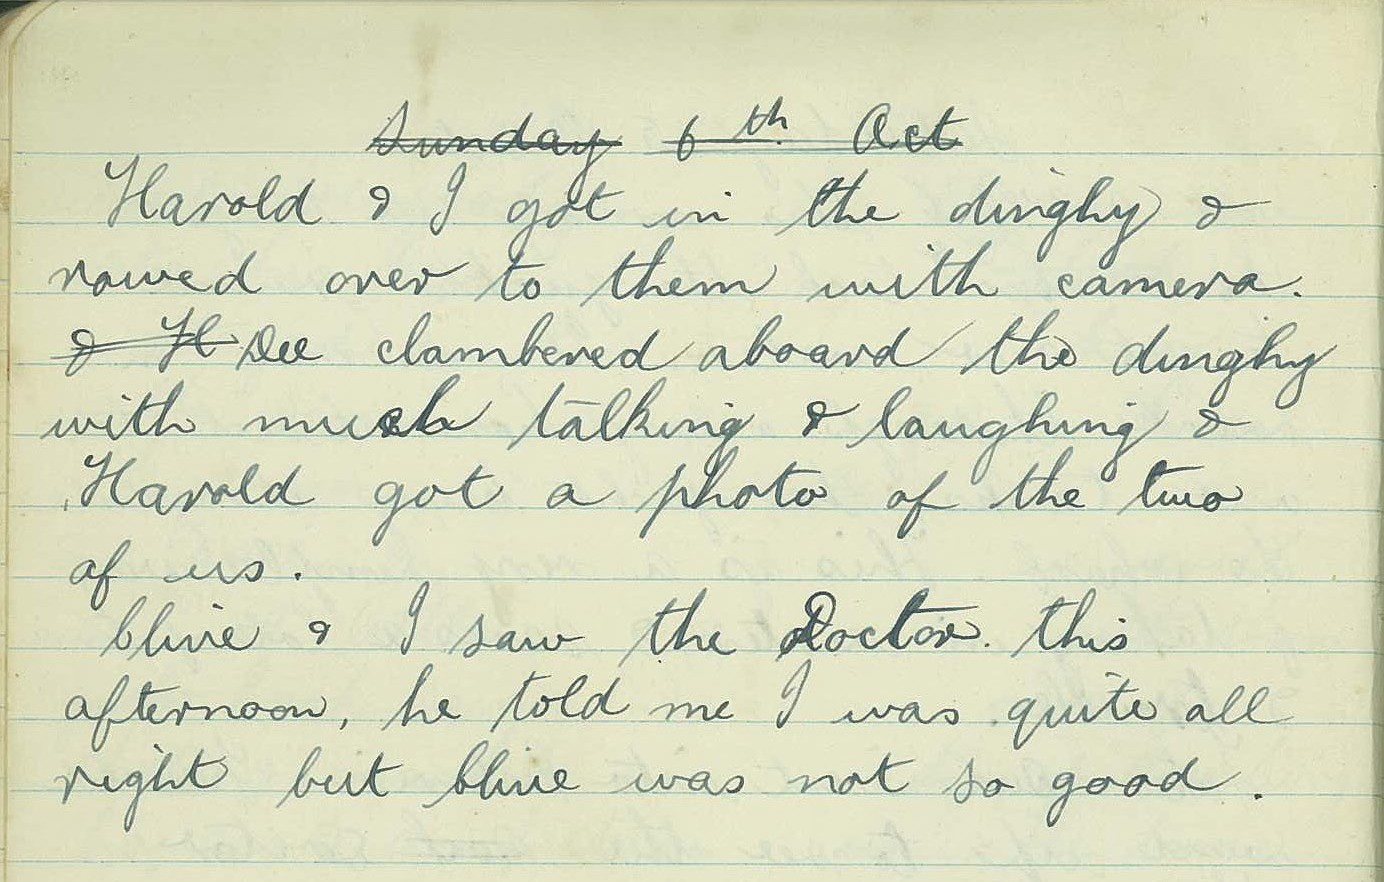 Sunday 6th Oct
Harold & I got in the dinghy &
rowed over to them with camera.
& H Dee clambered aboard the dinghy
with much talking & laughing &
Harold got a photo of the two
of us.
Clive & I saw the Doctor. this
afternoon, he told me I was quite all
right but Clive was not so good.